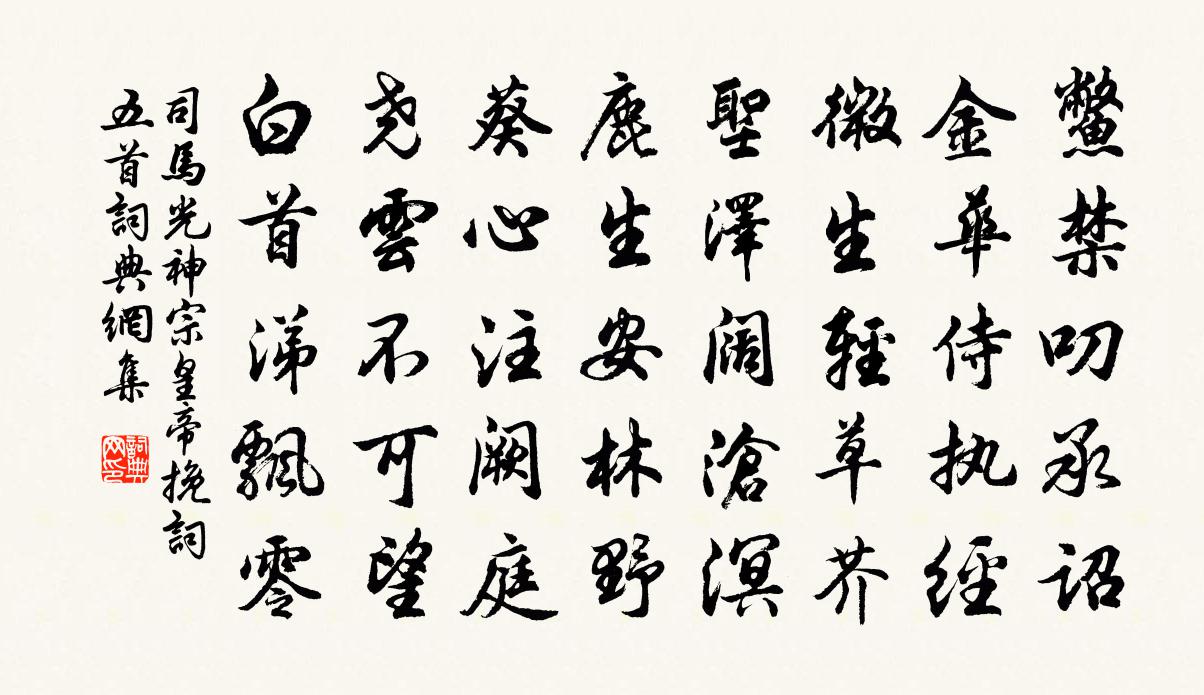 鱉禁叨承詔
金華侍执經
微生輕草芥
聖澤闊滄溟
鹿生安林野
葵心注闕庭
尧雲不可望
白首涕飄零
司馬光神宗皇帝挽詞
五首詞典網集
詞典
网印